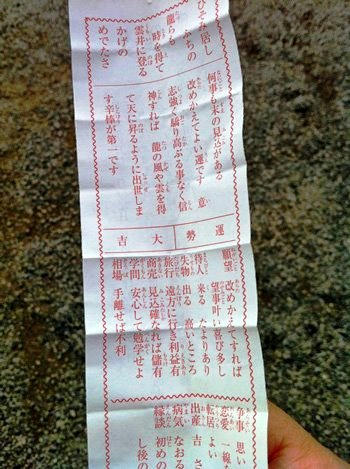 ひそみ居し
ふちの
龍らも
時を得て
雲井に登る
かげの
めでたさ
何事も末の見込がある
改めかえてよい運です 意
志強く驕り高ぶる事なく信
神すれば 龍の風や雲を得
て天に昇るように出世しま
す辛棒が第一です
運勢 大吉
願望 改めかえてすれば
望事叶い喜び多し
待人 来る たよりあり
失物 出る 高いところ
旅行 遠方に行き利益有
商売 見込確なれば儲有
学問 安心して勉学せよ
相場 手離せば不利
争事 思い
恋愛 一線
転居 よい
出産 吉 さ
病気 なおる
縁談 初めの
し後の